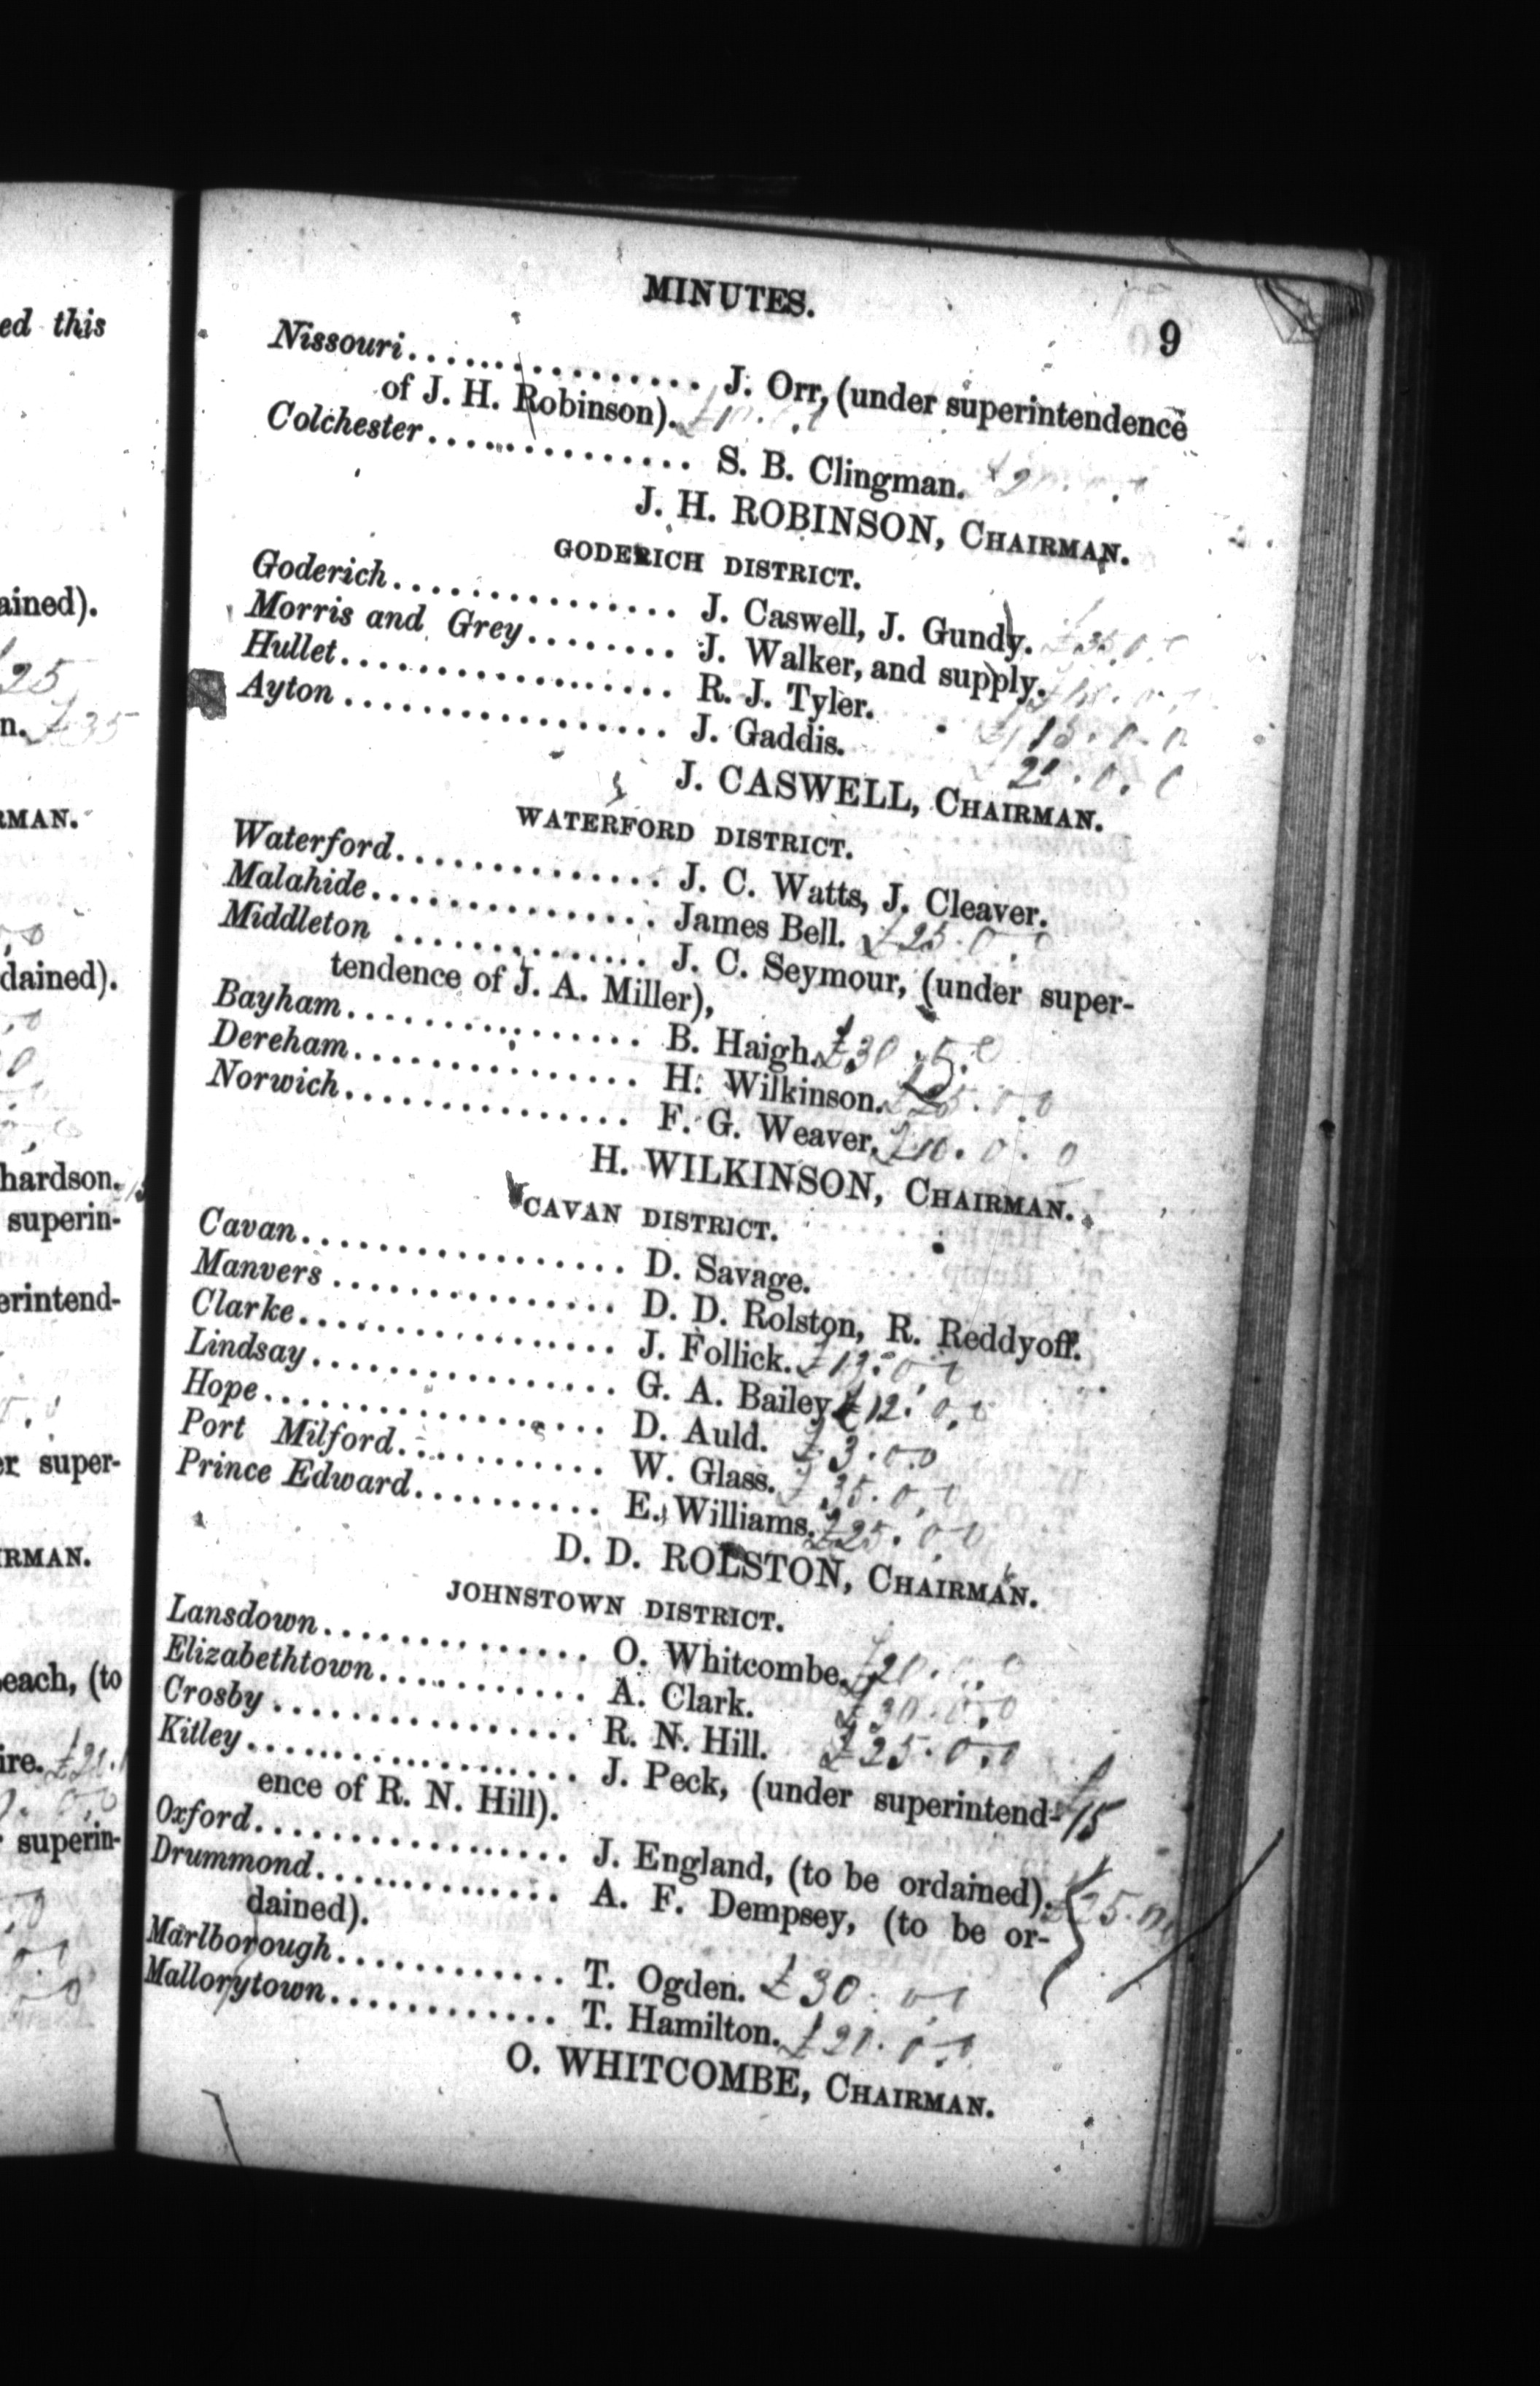 MINUTES. 9
Nissouri................ J. Orr, (under superintendence
of J. H. Robinson).
Colchester.............. S. B. Clingman.
J. H. ROBINSON, CHAIRMAN.
GODERICH DISTRICT.
Goderich............... J. Caswell, J. Gundy.
Morris and Grey........ J. Walker, and supply.
Hullet................. R. J. Tyler.
Ayton ................. J. Gaddis.
J. CASWELL, CHAIRMAN.
WATERFORD DISTRICT.
Waterford.............. J. C. Watts, J. Cleaver.
Malahide............... James Bell. £25.0.0
Middleton ............. J. C. Seymour, (under super-
tendence of J. A. Miller),
Bayham................ B. Haigh.
Dereham............... H. Wilkinson.
Norwich............... F. G. Weaver. £10.0.0
H. WILKINSON, CHAIRMAN.
CAVAN DISTRICT.
Cavan................. D. Savage.
Manvers ............... D. D. Rolston, R. Reddyoff.
Clarke................. J. Follick.
Lindsay................ G. A. Bailey £12.0.0
Hope.................. D. Auld. £3.0.0
Port Milford........... W. Glass. £35.0.0
Prince Edward.......... E. Williams. £25.0.0
D. D. ROLSTON, CHAIRMAN.
JOHNSTOWN DISTRICT.
Lansdown.............. O. Whitcombe. £20.0.0
Elizabethtown........... A. Clark. £30.0.0
Crosby ................ R. N. Hill. £25.0.0
Kitley................. J. Peck, (under superintend- £15
ence of R. N. Hill).
Oxford................ J. England, (to be ordained).
Drummond............. A. F. Dempsey, (to be or-
dained).
Marlborough............ T. Ogden. £30.0.0
Mallorytown............ T. Hamilton.
O. WHITCOMBE, CHAIRMAN.
ed this
ained).
25
n. £35
RMAN.
dained).
hardson.
superin-
erintend-
er super-
IRMAN.
each, (to
ire.
superin-